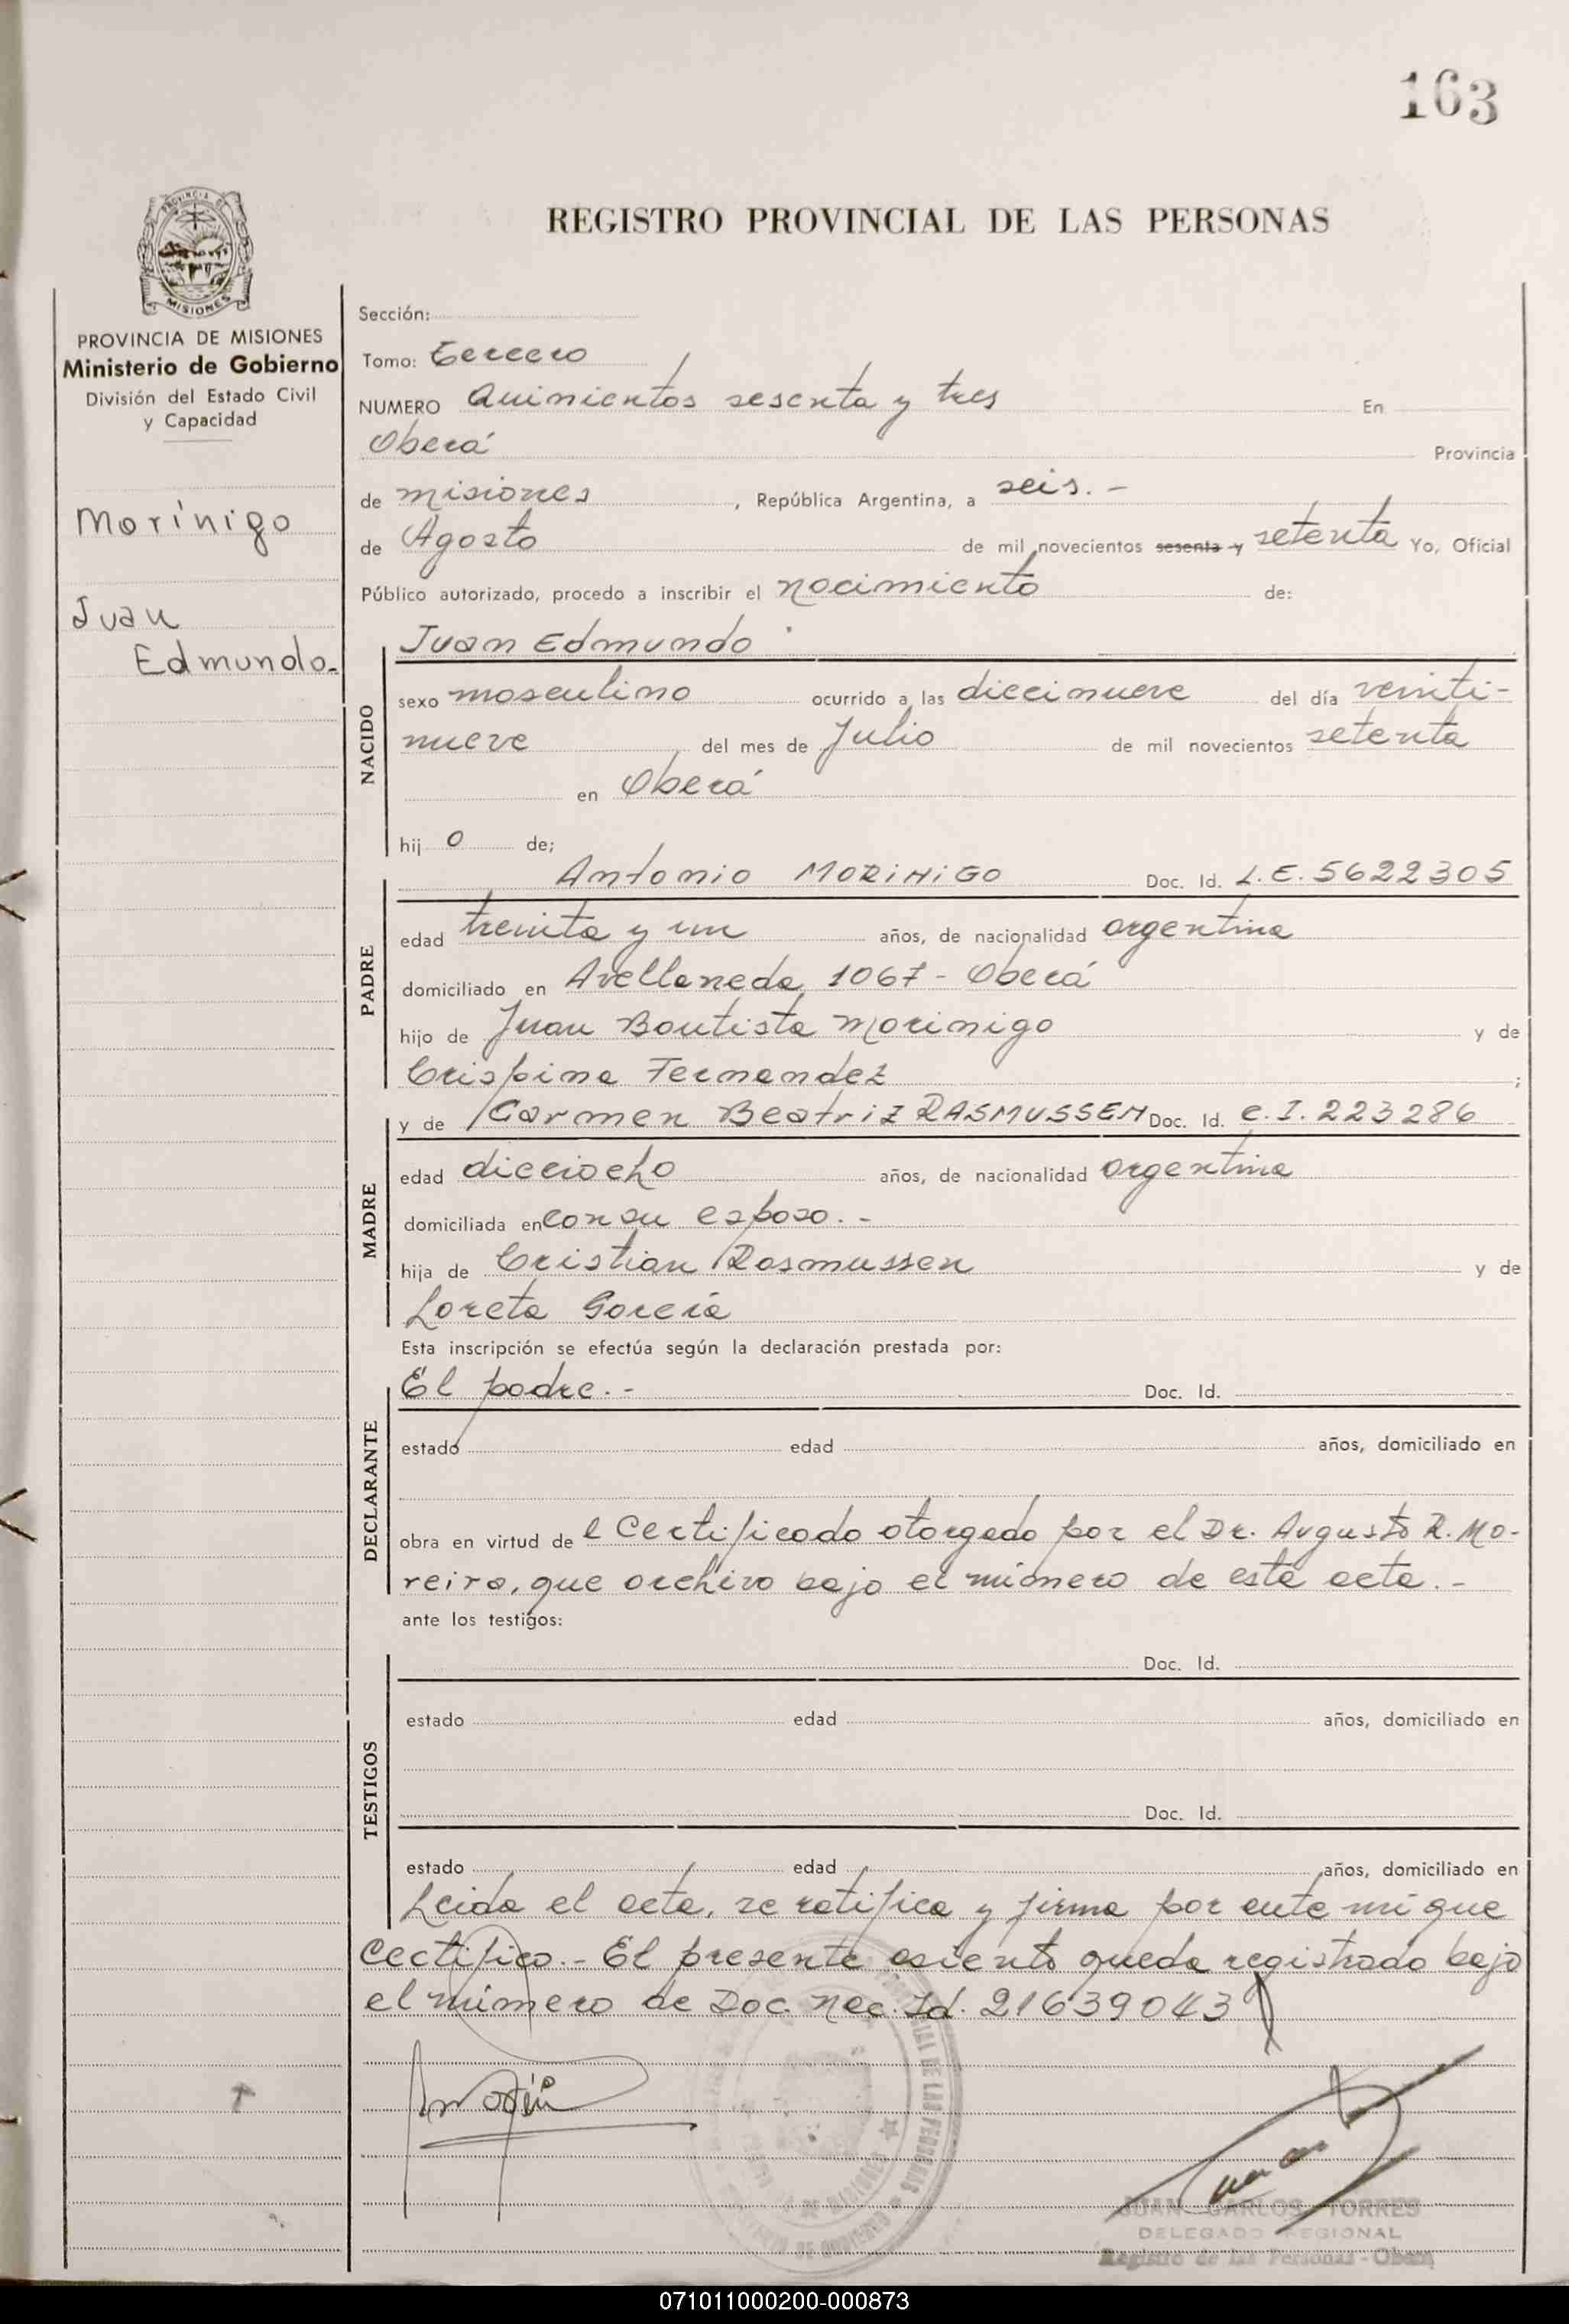 163
REGISTRO PROVINCIAL DE LAS PERSONAS
MISIONES
PROVINCIA DE MISIONES
Ministerio de Gobierno
División del Estado Civil
y Capacidad
Morínigo
Juan
Edmundo.-
Sección:
Tomo: Tercero
NUMERO Quinientos sesenta y tres En
Oberá Provincia
de misiones, República Argentina, a seis.-
de Agosto de mil novecientos sesenta y setenta Yo, Oficial
Público autorizado, procedo a inscribir el nacimiento de:
Juan Edmundo
NACIDO
sexo masculino ocurrido a las diecinueve del día veinti-
nueve del mes de Julio de mil novecientos setenta
en Oberá
hij o de;
PADRE
Antonio MORINIGO Doc. Id. L.E. 5622305
edad treinta y un años, de nacionalidad argentina
domiciliado en Avellaneda 1067 - Oberá
hijo de Juan Bautista Morinigo y de
Crispina Fernandez ;
MADRE
y de Carmen Beatriz RASMUSSEN Doc. Id. C.I. 223286
edad dieciocho años, de nacionalidad argentina
domiciliada en con su esposo.-
hija de Cristian Rasmussen y de
Loreta García
Esta inscripción se efectúa según la declaración prestada por:
DECLARANTE
El padre.- Doc. Id.
estado edad años, domiciliado en
obra en virtud de l Certificado otorgado por el Dr. Augusto R. Mo-
reira, que archivo bajo el número de esta acta.-
ante los testigos:
TESTIGOS
Doc. Id.
estado edad años, domiciliado en
Doc. Id.
estado edad años, domiciliado en
Leida el acta, se ratifica y firma por ante mí que
Certifico.- El presente asiento queda registrado bajo
el número de Doc. Nac. Id. 21639043
JUAN CARLOS TORRES
DELEGADO REGIONAL
Registro de las Personas - Oberá
071011000200-000873